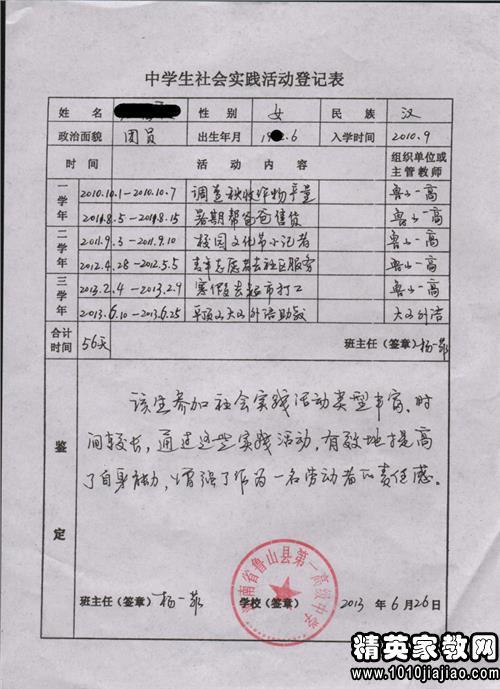 中学生社会实践活动登记表
姓 名 性 别 女 民 族 汉
政治面貌 团员 出生年月 19 .6 入学时间 2010.9
时 间 活 动 内 容 组织单位或主管教师
一学年 2010.10.1-2010.10.7 调查秋收作物产量 鲁山一高
2011.8.5-2011.8.15 暑期帮爸爸售货 鲁山一高
二学年 2011.9.3-2011.9.10 校园文化节小记者 鲁山一高
2012.4.28-2012.5.5 青年志愿者去社区服务 鲁山一高
三学年 2013.2.4-2013.2.9 寒假去超市打工 鲁山一高
2013.6.10-2013.6.25 平顶山大山外语助教 大山外语
合计时间 56天 班主任(签章) 杨一菲
鉴定
该生参加社会实践活动类型丰富、时
间较长,通过这些实践活动,有效地提高
了自身能力,增强了作为一名劳动者的责任感。
河南省鲁山县第一高级中学
班主任(签章) 杨一菲 学校(签章) 2013 年 6 月 26 日
精英家教网
www.1010jiajiao.com